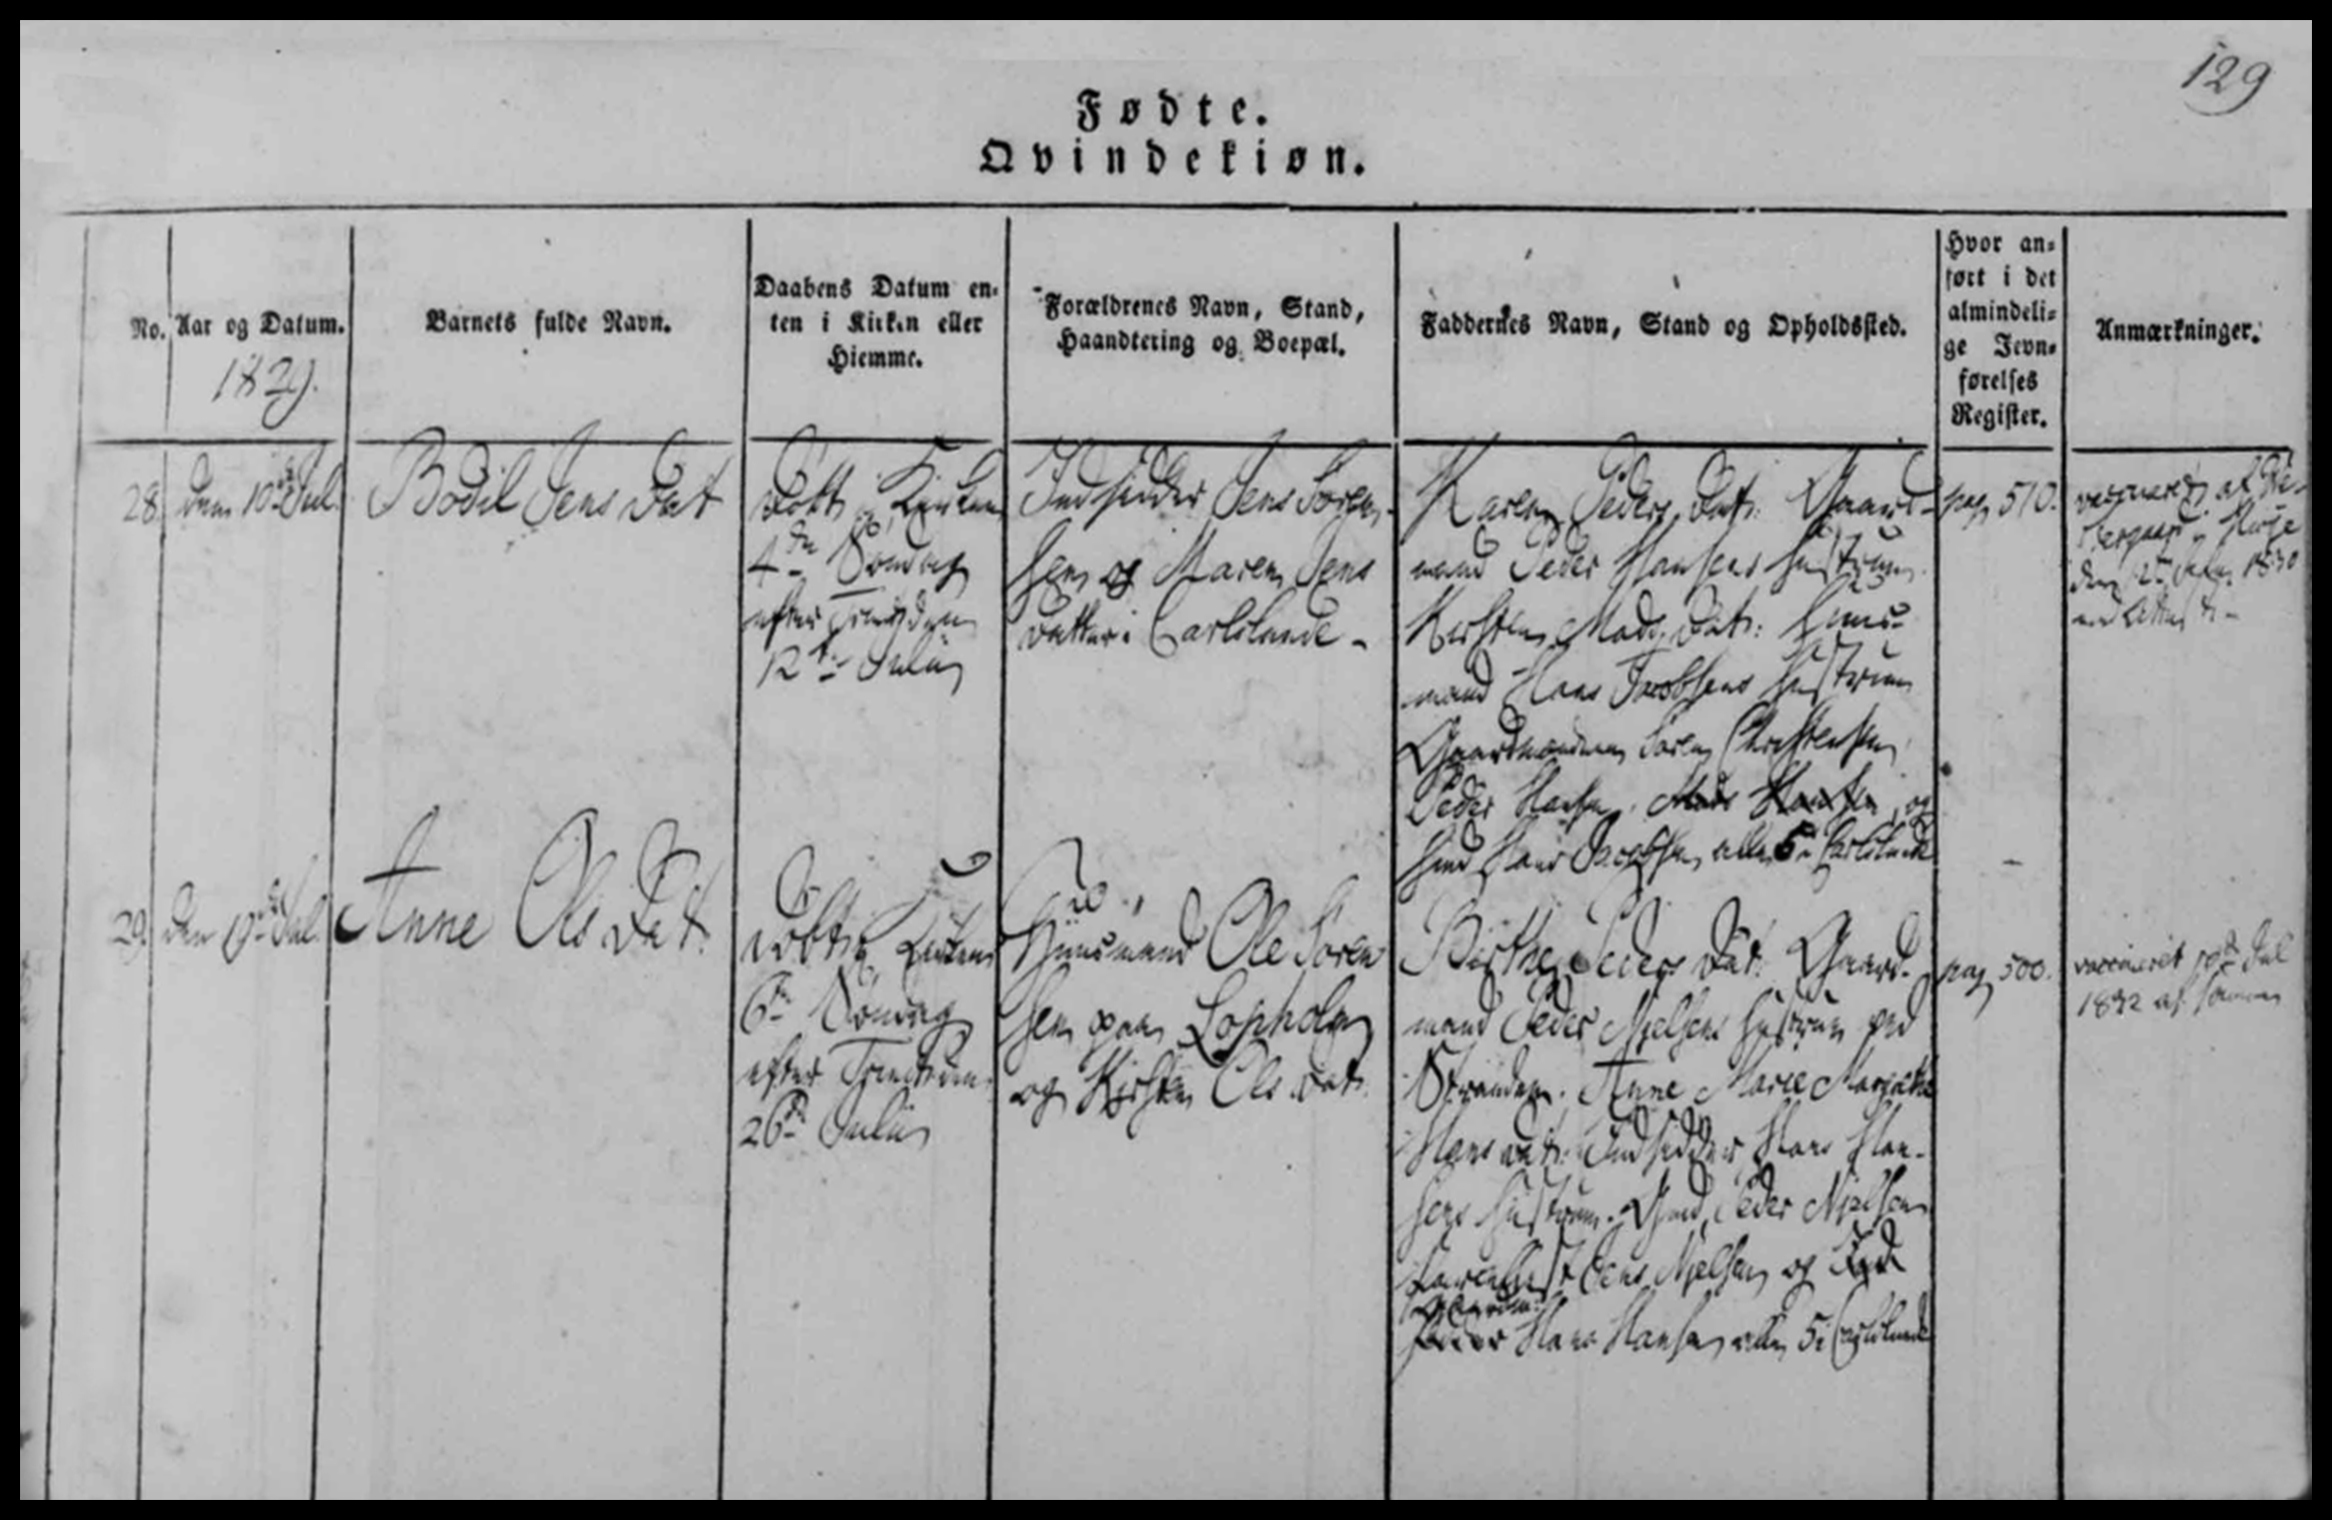 129
Fødte.
Qvindekiøn.
No.
Aar og Datum.
1829.
Barnets fulde Navn.
Daabens Datum en-
ten i Kirken eller
Hiemme.
Forældrenes Navn, Stand,
Haandtering og Boepæl.
Faddernes Navn, Stand og Opholdssted.
Hvor an-
ført i det
almindeli-
ge Jevn-
førelses
Register.
Anmærkninger.
28.
den 10de Jul.
Bodil Jens Dat
Døbt i Kirken
4de Søndag
efter
12te Julii
Indsidder Jens Søren-
sen og Maren Jens
datter i Carlslunde -
Karen Peders Dat: Gaard-
mand Peder Hansens Hustrue
Kirsten Mads Dat: Huus-
mand Hans Jacobsens Hustrue
Gaardmændene Søren Christensen
Peder Hansen, Mads Hansen, og
Hmd Hans Jacobsen alle 5 i Carlslunde
pag 510.
af
Kiøge
1830
29.
den 19de Jul.
Anne Ols Dat.
Døbt i Kirken
6te Søndag
efter Trinitatis
26de Julii
Huusmand Ole Søren
sen paa Lopholm
og Kirsten Ols Dat.
Birthe Peders Dat: Gaard-
mand Peder Nielsens Hustrue ved
Stranden. Anne Marie Margrethe
Hans Dat: Indsidder Hans Han-
sens Hustrue. Gmd Peder Nielsen
Jens Nielsen og
Hans Hansen alle 5 i Carlslunde
pag 500.
vaccineret Jul
1832 af samme